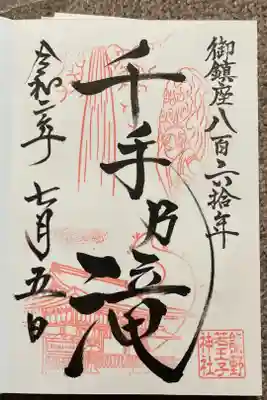 御鎮座八百六拾年
千手乃滝
令和二年
七月五日
熊野
若王子
神社